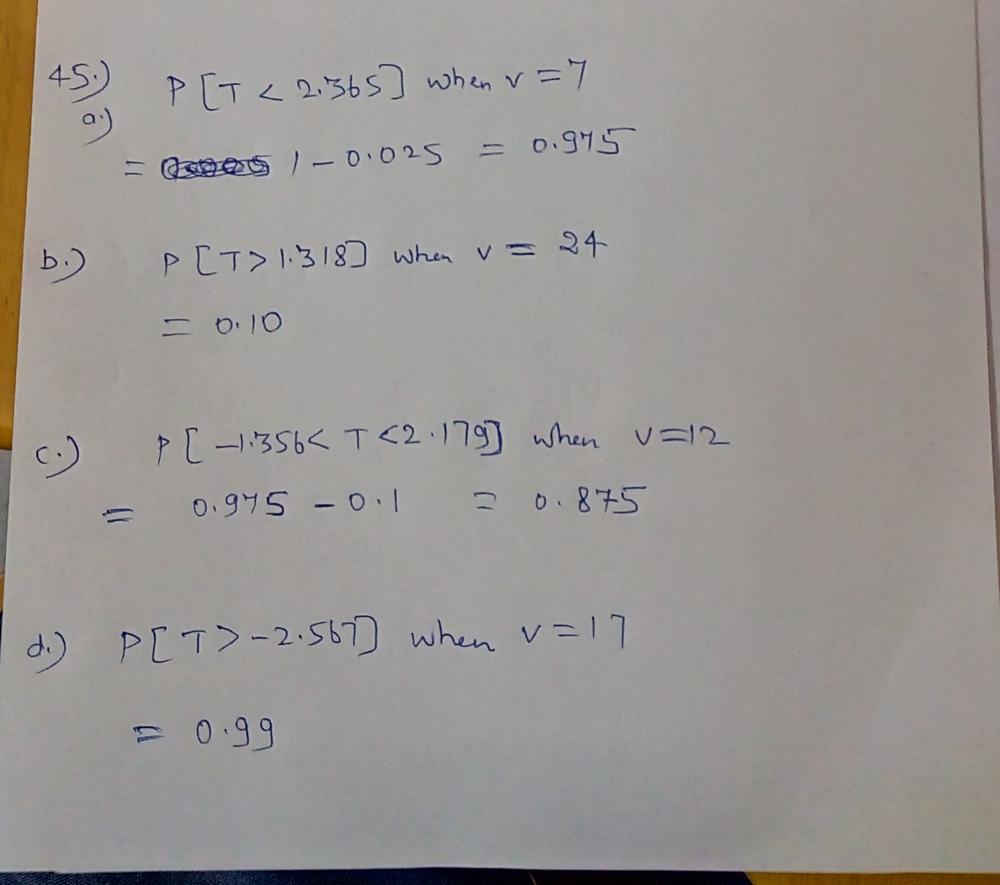 45.) P[T < 2.365] when v = 7
a.)
= 1 - 0.025 = 0.975
b.) P[T > 1.318] when v = 24
= 0.10
c.) P[-1.356 < T < 2.179] when v = 12
= 0.975 - 0.1 = 0.875
d.) P[T > -2.567] when v = 17
= 0.99